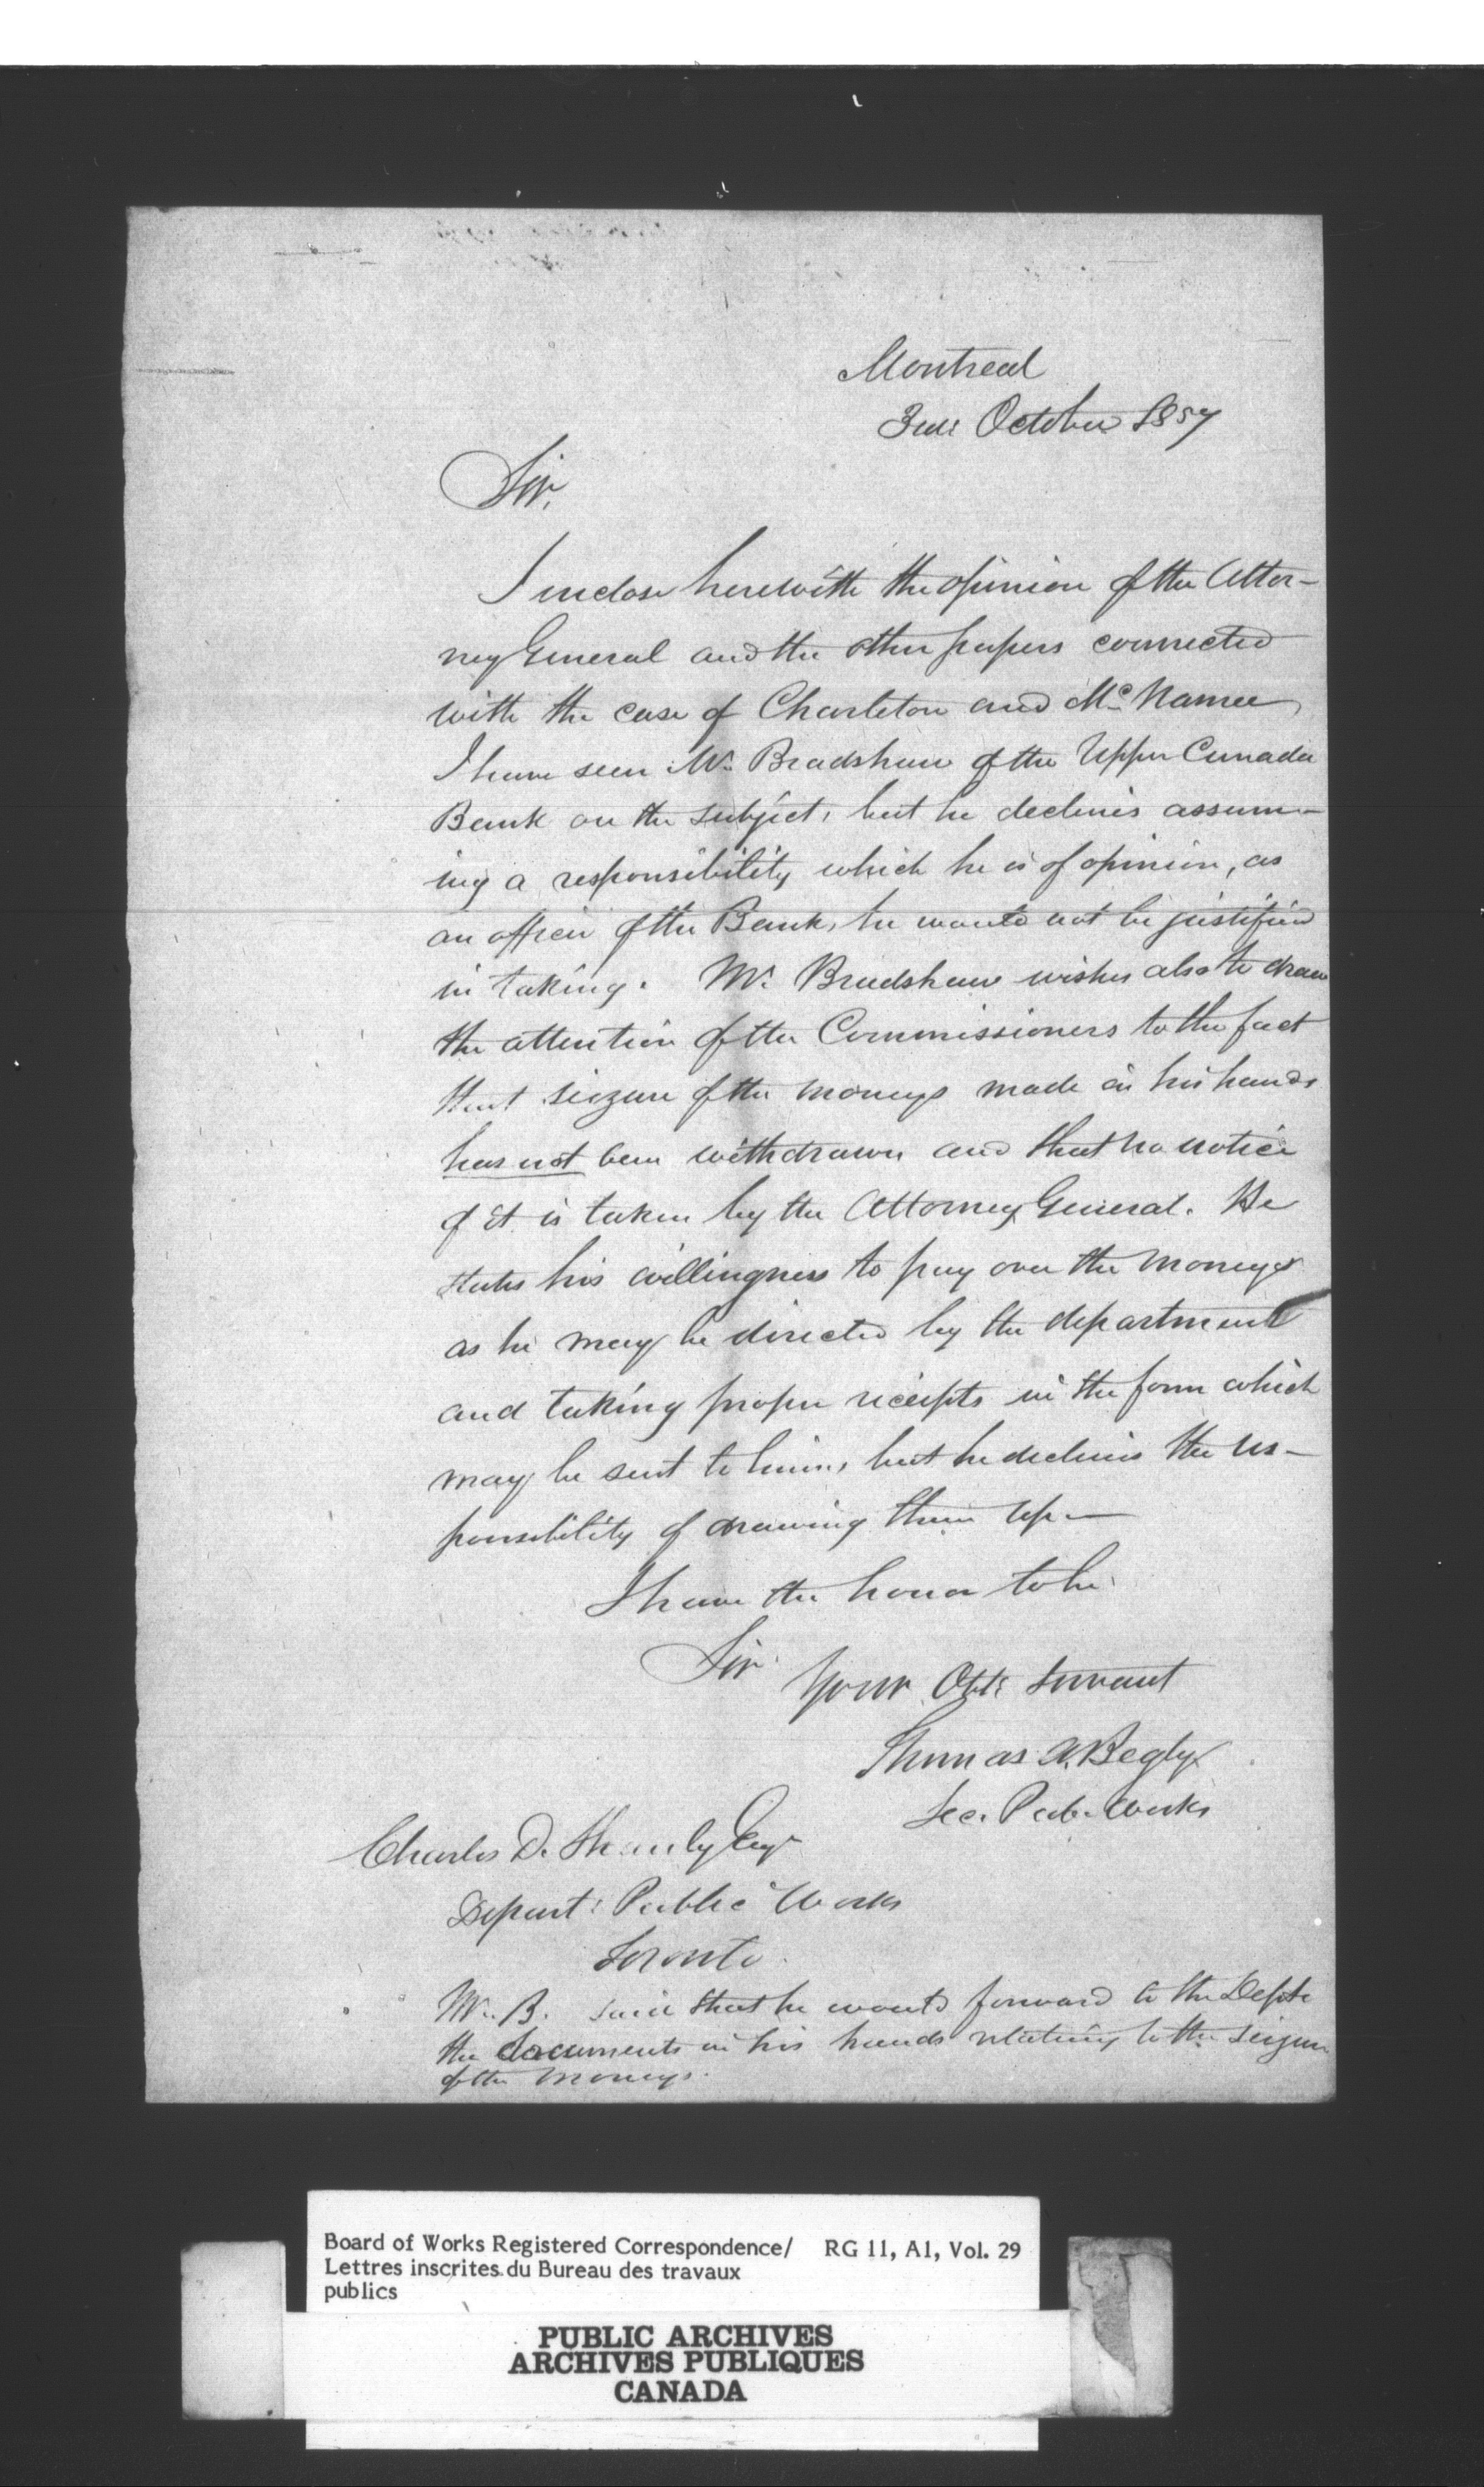 Montreal
October 1857
Sir,
I inclose herewith the opinion of the Attor-
ney General and the other papers connected
with the case of Charleton and McNamee
I have seen Mr. Bradshaw of the Upper Canada
Bank on the subject, but he declines assum-
ing a responsibility which he is of opinion, as
an officer of the Bank, he would not be justified
in taking. Mr. Bradshaw wishes also to draw
the attention of the Commissioners to the fact
that seizure of the moneys made in his hands
has not been withdrawn and that no notice
of it is taken by the Attorney General. He
states his willingness to pay over the moneys
as he may be directed by the department
and taking proper receipts in the form which
may be sent to him, but he declines the res-
ponsibility of drawing them up—
I have the honor to be
Sir Your Obt. Servant
Thomas A. Begly
Sec. Pub. Works
Charles D. Shanly Esqr
Depart: Public Works
Toronto.
Mr. B. said that he would forward to the Dept.
the documents in his hands relating to the seizure
of the moneys.
Board of Works Registered Correspondence/ RG 11, A1, Vol. 29
Lettres inscrites du Bureau des travaux
publics
PUBLIC ARCHIVES
ARCHIVES PUBLIQUES
CANADA